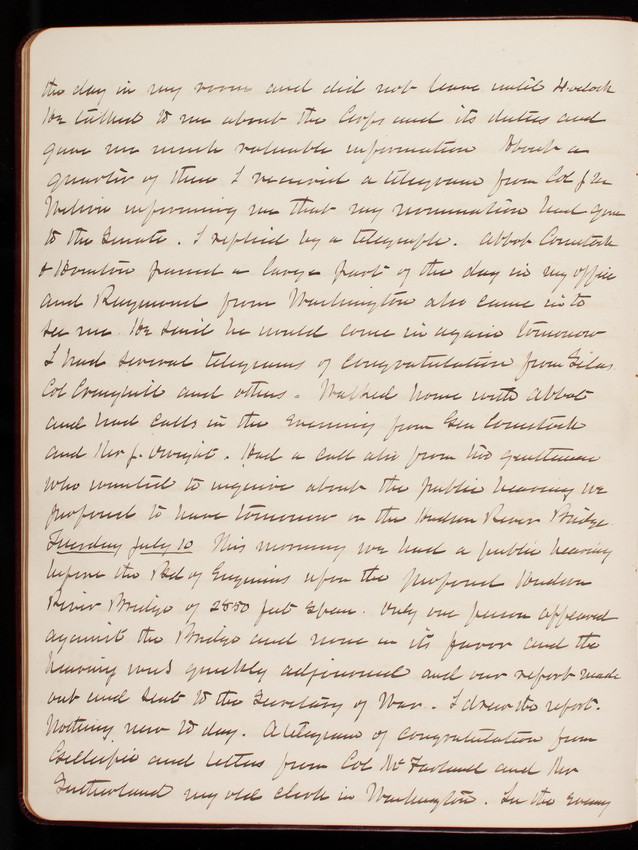 the day in my room and did not leave until 4 oclock
He talked to me about the Corps and its duties and
gave me much valuable information About a
quarter of three I received a telegram from Col J M
Wilson informing me that my nomination had gone
to the Senate. I replied by a telegraph. Abbot Comstock
& Houston passed a large part of the day in my office
and Raymond from Washington also came in to
see me. He said he would come in again tomorrow
I had several telegrams of congratulation from
Col Craighill and others. Walked home with Abbot
and had calls in the evening from Gen Comstock
and Mr J. Dwight. Had a call also from two gentlemen
who wanted to inquire about the public hearing we
proposed to have tomorrow on the Hudson River Bridge.
Tuesday July 10 This morning we had a public hearing
before the Bd of Engineers upon the proposed Hudson
River Bridge of 2850 feet span. Only one person appeared
against the Bridge and none in its favor and the
hearing was quickly adjourned and our report made
out and sent to the Secretary of War. I drew the report.
Nothing new to day. A telegram of congratulation from
Gillespie and letters from Col McFarland and Mr
Sutherland my old clerk in Washington. In the eveng